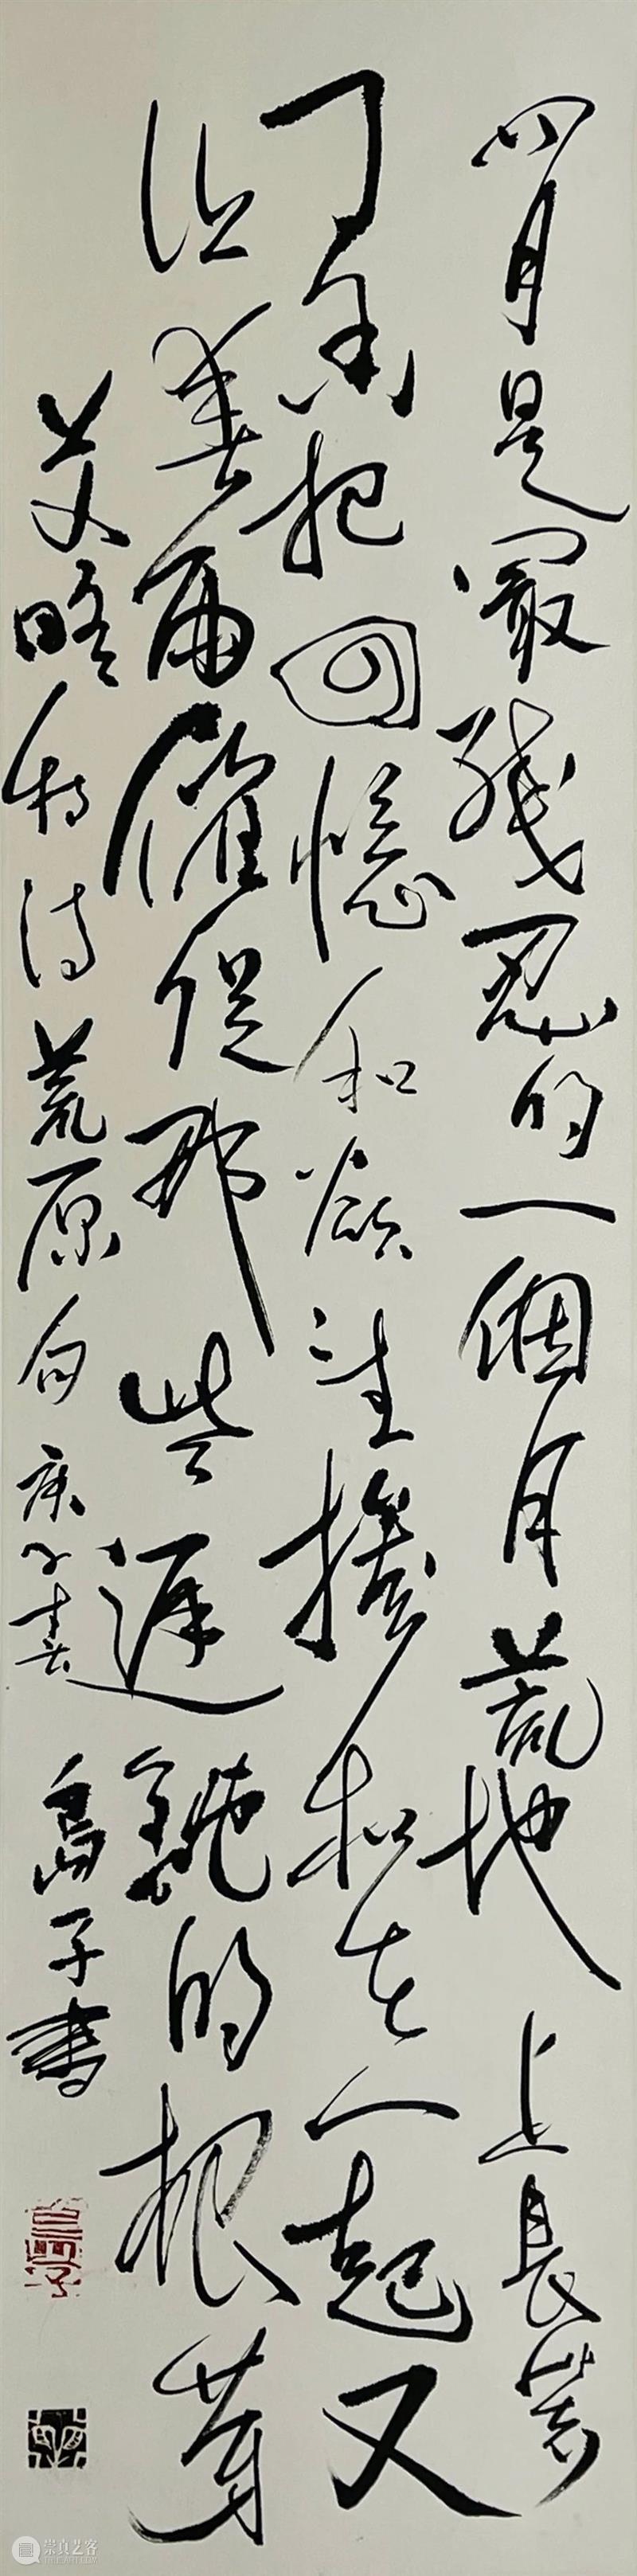 四月是最残忍的一個月荒地上長著
丁香把回憶和欲望摻和在一起又
让春雨催促那些遲鈍的根芽
艾略特诗荒原句 庚子春 島子書
崇真艺客